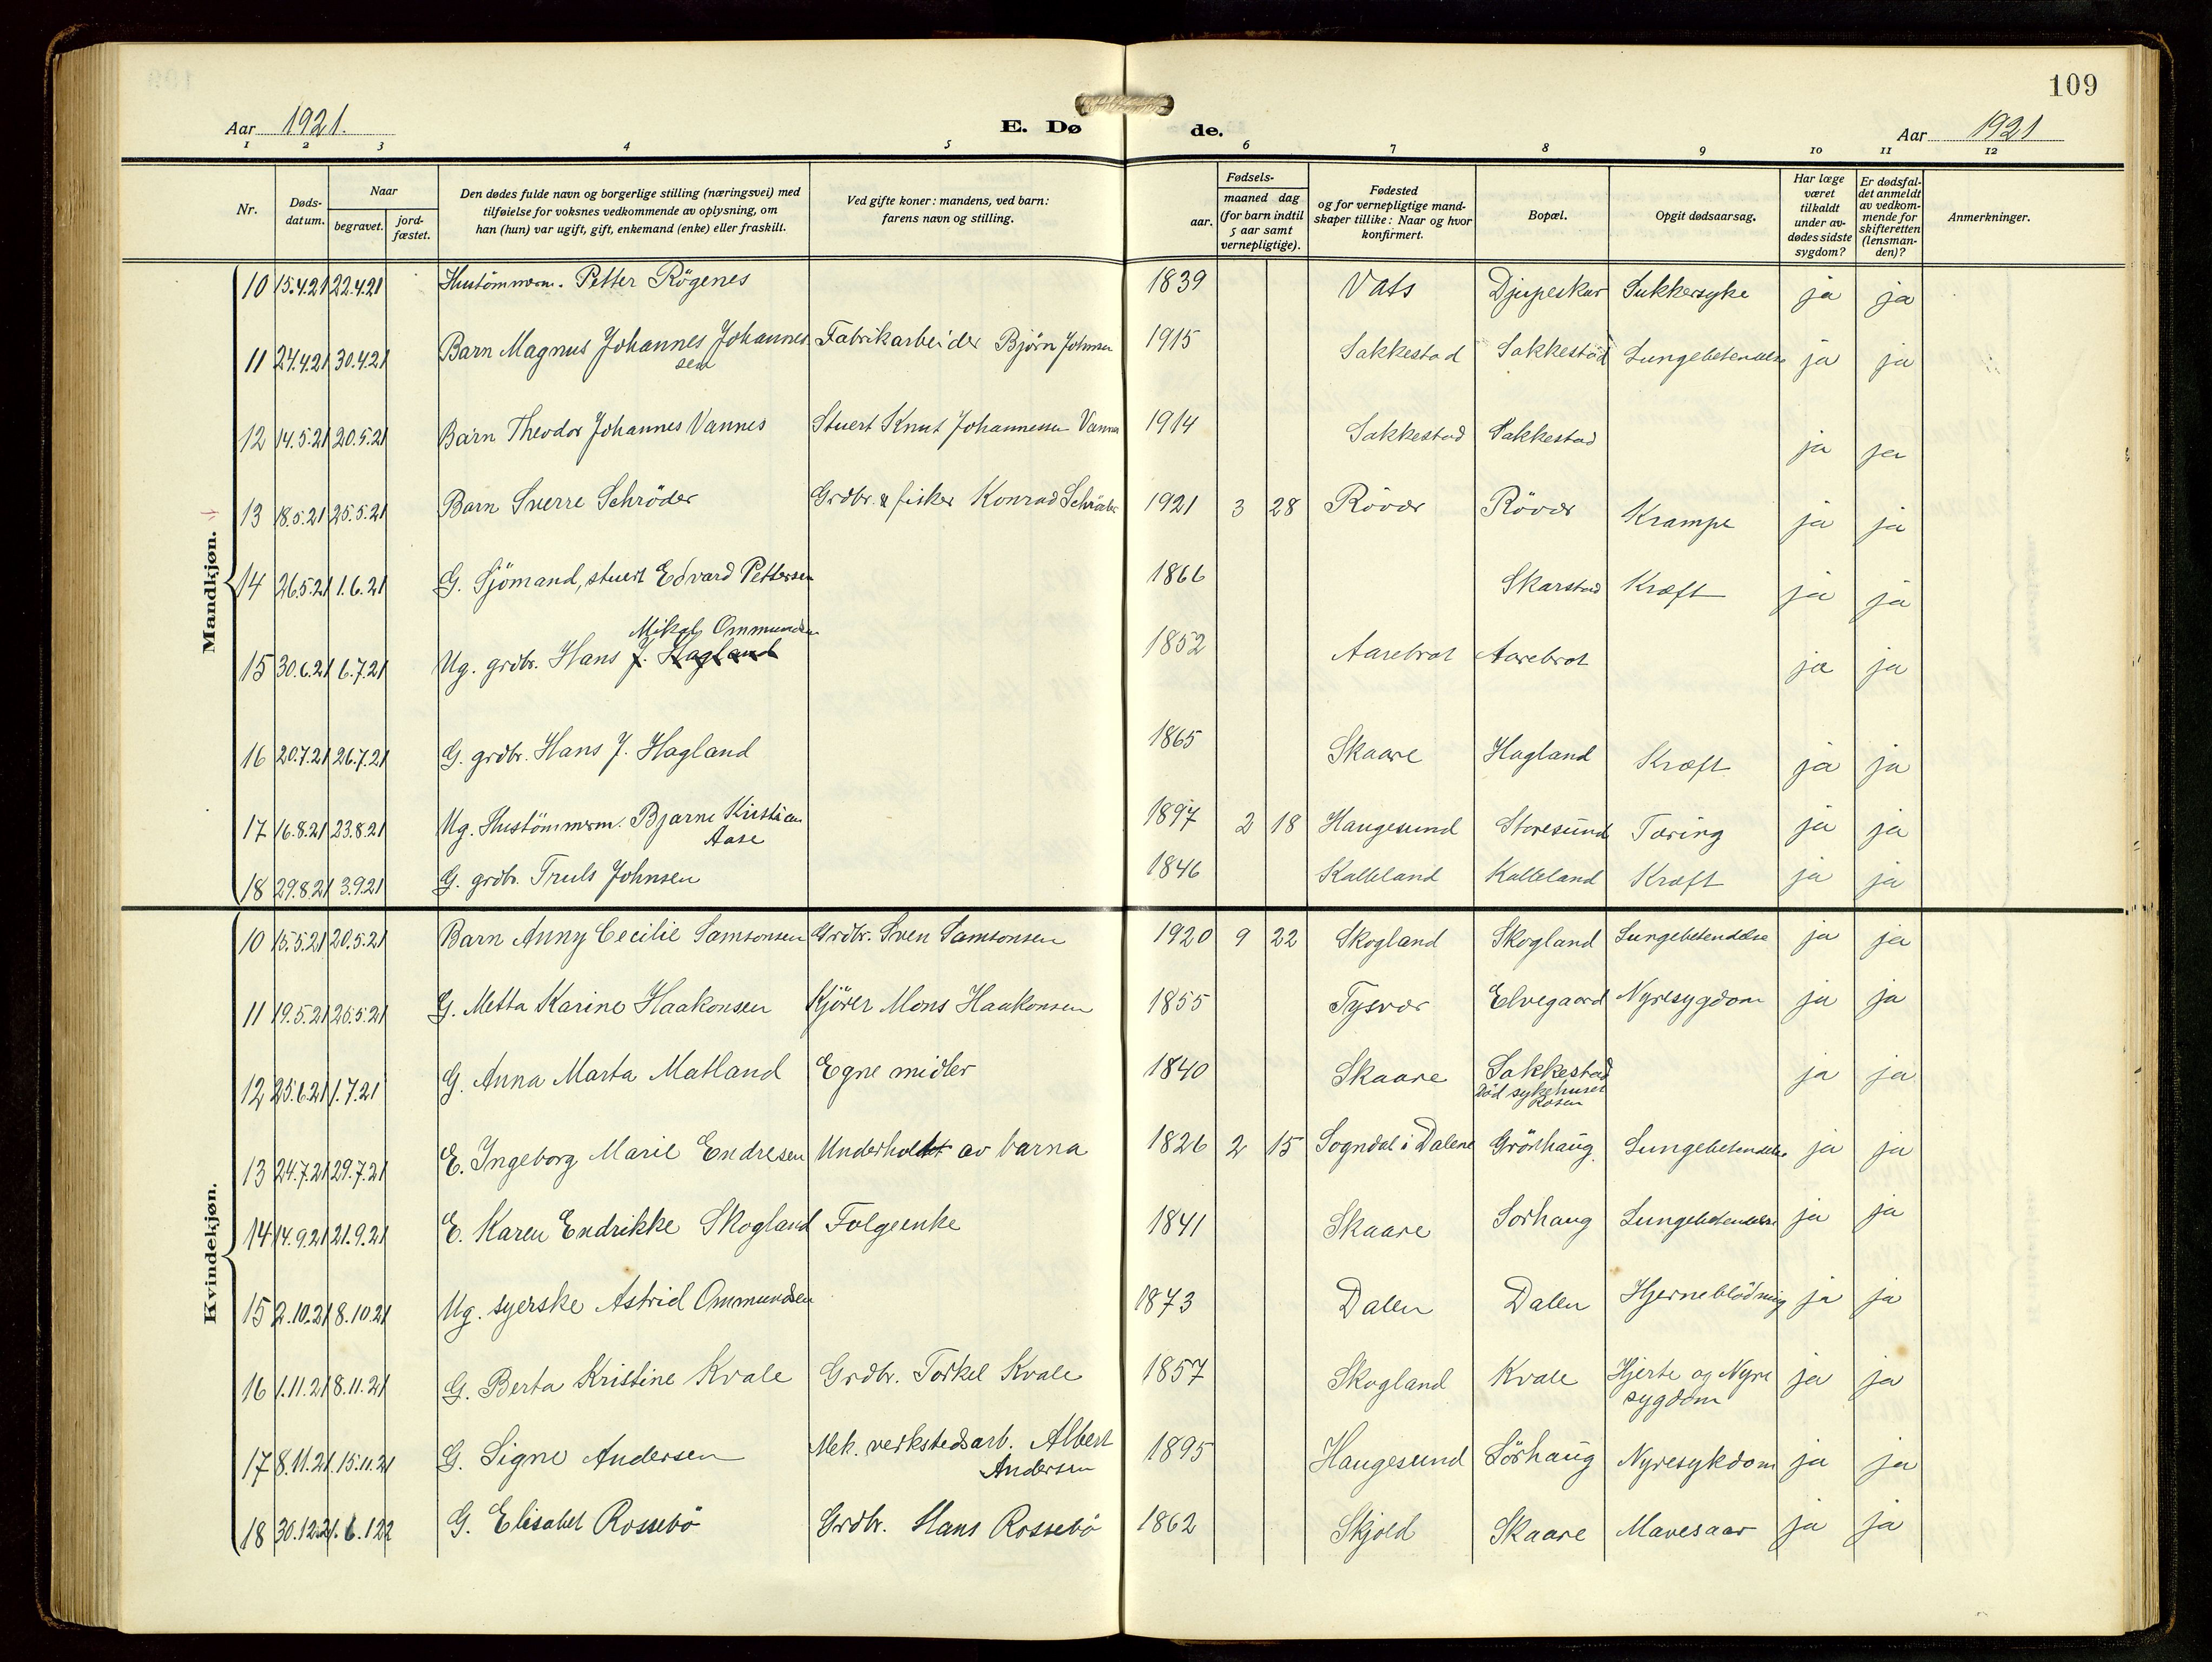 109
Aar 1921.
E. Dø de.
Aar 1921
1 2 3 4 5 6 7 8 9 10 11 12
Nr.
Døds-datum.
Naar
begravet.
jord-fæstet.
Den dødes fulde navn og borgerlige stilling (næringsvei) med
tilføielse for voksnes vedkommende av oplysning, om
han (hun) var ugift, gift, enkemand (enke) eller fraskilt.
Ved gifte koner: mandens, ved barn:
farens navn og stilling.
Fødsels-
aar.
maaned dag
(for barn indtil
5 aar samt
vernepligtige).
Fødested
og for vernepligtige mand-
skaper tillike: Naar og hvor
konfirmert.
Bopæl.
Opgit dødsaarsag.
Har læge
været
tilkaldt
under av-
dødes sidste
sygdom?
Er dødsfal-
det anmeldt
av vedkom-
mende for
skifteretten
(lensman-
den)?
Anmerkninger.
Mandkjøn.
10 15.4.21 22.4.21 Hustömmerm. Petter Rögenes 1839 Vats Djupeskar Sukkersyke ja ja
11 24.4.21 30.4.21 Barn Magnus Johannes Johannes Fabrikarbeider Björn Johnsen 1915 Sakkestad Sakkestad Lungebetendelse ja ja
sen
12 14.5.21 20.5.21 Barn Theodor Johannes Vannes Stuert Knut Johannessen Vannes 1914 Sakkestad Sakkestad ja ja
13 18.5.21 25.5.21 Barn Sverre Schröder Grdbr. & fisker Konrad Schröder 1921 3 28 Rövær Rövær Krampe ja ja
14 26.5.21 1.6.21 G. Sjömand, stuert Edvard Pettersen 1866 Skarstad Kræft ja ja
Mikal Ommundsen
15 30.6.21 6.7.21 Ug. grdbr. Hans J. Hagland 1852 Aarebrot Aarebrot ja ja
16 20.7.21 26.7.21 G. grdbr. Hans J. Hagland 1865 Skaare Hagland Kræft ja ja
17 16.8.21 23.8.21 Ug. Hustömmerm. Bjarne Kristian 1897 2 18 Haugesund Storesund Tæring ja ja
Aase
18 29.8.21 3.9.21 G. grdbr. Truls Johnsen 1846 Kalleland Kalleland Kræft ja ja
Kvindekjøn.
10 15.5.21 20.5.21 Barn Anny Cecilie Samsonsen Grdbr. Sven Samsonsen 1920 9 22 Skogland Skogland Lungebetendelse ja ja
11 19.5.21 26.5.21 G. Metta Karine Haakonsen Kjörer Mons Haakonsen 1855 Tysvær Elvegaard Nyresygdom ja ja
12 25.6.21 1.7.21 G. Anna Marta Matland Egne midler 1840 Skaare Sakkestad ja ja
Död sykehuset
13 24.7.21 29.7.21 E. Ingeborg Marie Endresen Underholdt av barna 1826 2 15 Sogndal i Dalene Grönhaug Lungebetendelse ja ja
14 14.9.21 21.9.21 E. Karen Endrikke Skogland Folgeenke 1841 Skaare Sörhaug Lungebetendelse ja ja
15 2.10.21 8.10.21 Ug. syerske Astrid Ommundsen 1873 Dalen Dalen Hjerneblödning ja ja
16 1.11.21 8.11.21 G. Berta Kristine Kvale Grdbr. Torkel Kvale 1857 Skogland Kvale Hjerte og Nyre ja ja
sygdom
17 8.11.21 15.11.21 G. Signe Andersen Mek. verkstedsarb. Albert 1895 Haugesund Sörhaug Nyresykdom ja ja
Andersen
18 30.12.21 6.1.22 G. Elisabet Rossebö Grdbr. Hans Rossebö 1862 Skjold Skaare Mavesaar ja ja